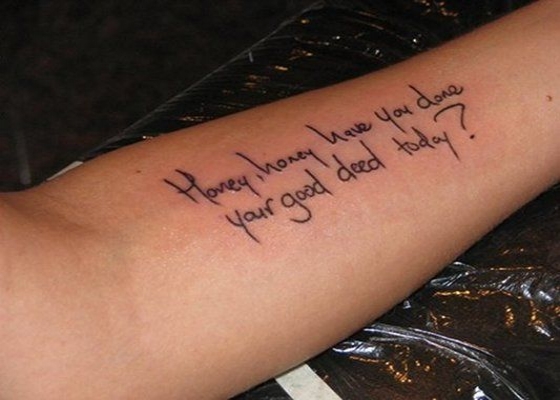 Honey, honey have you done
your good deed today?